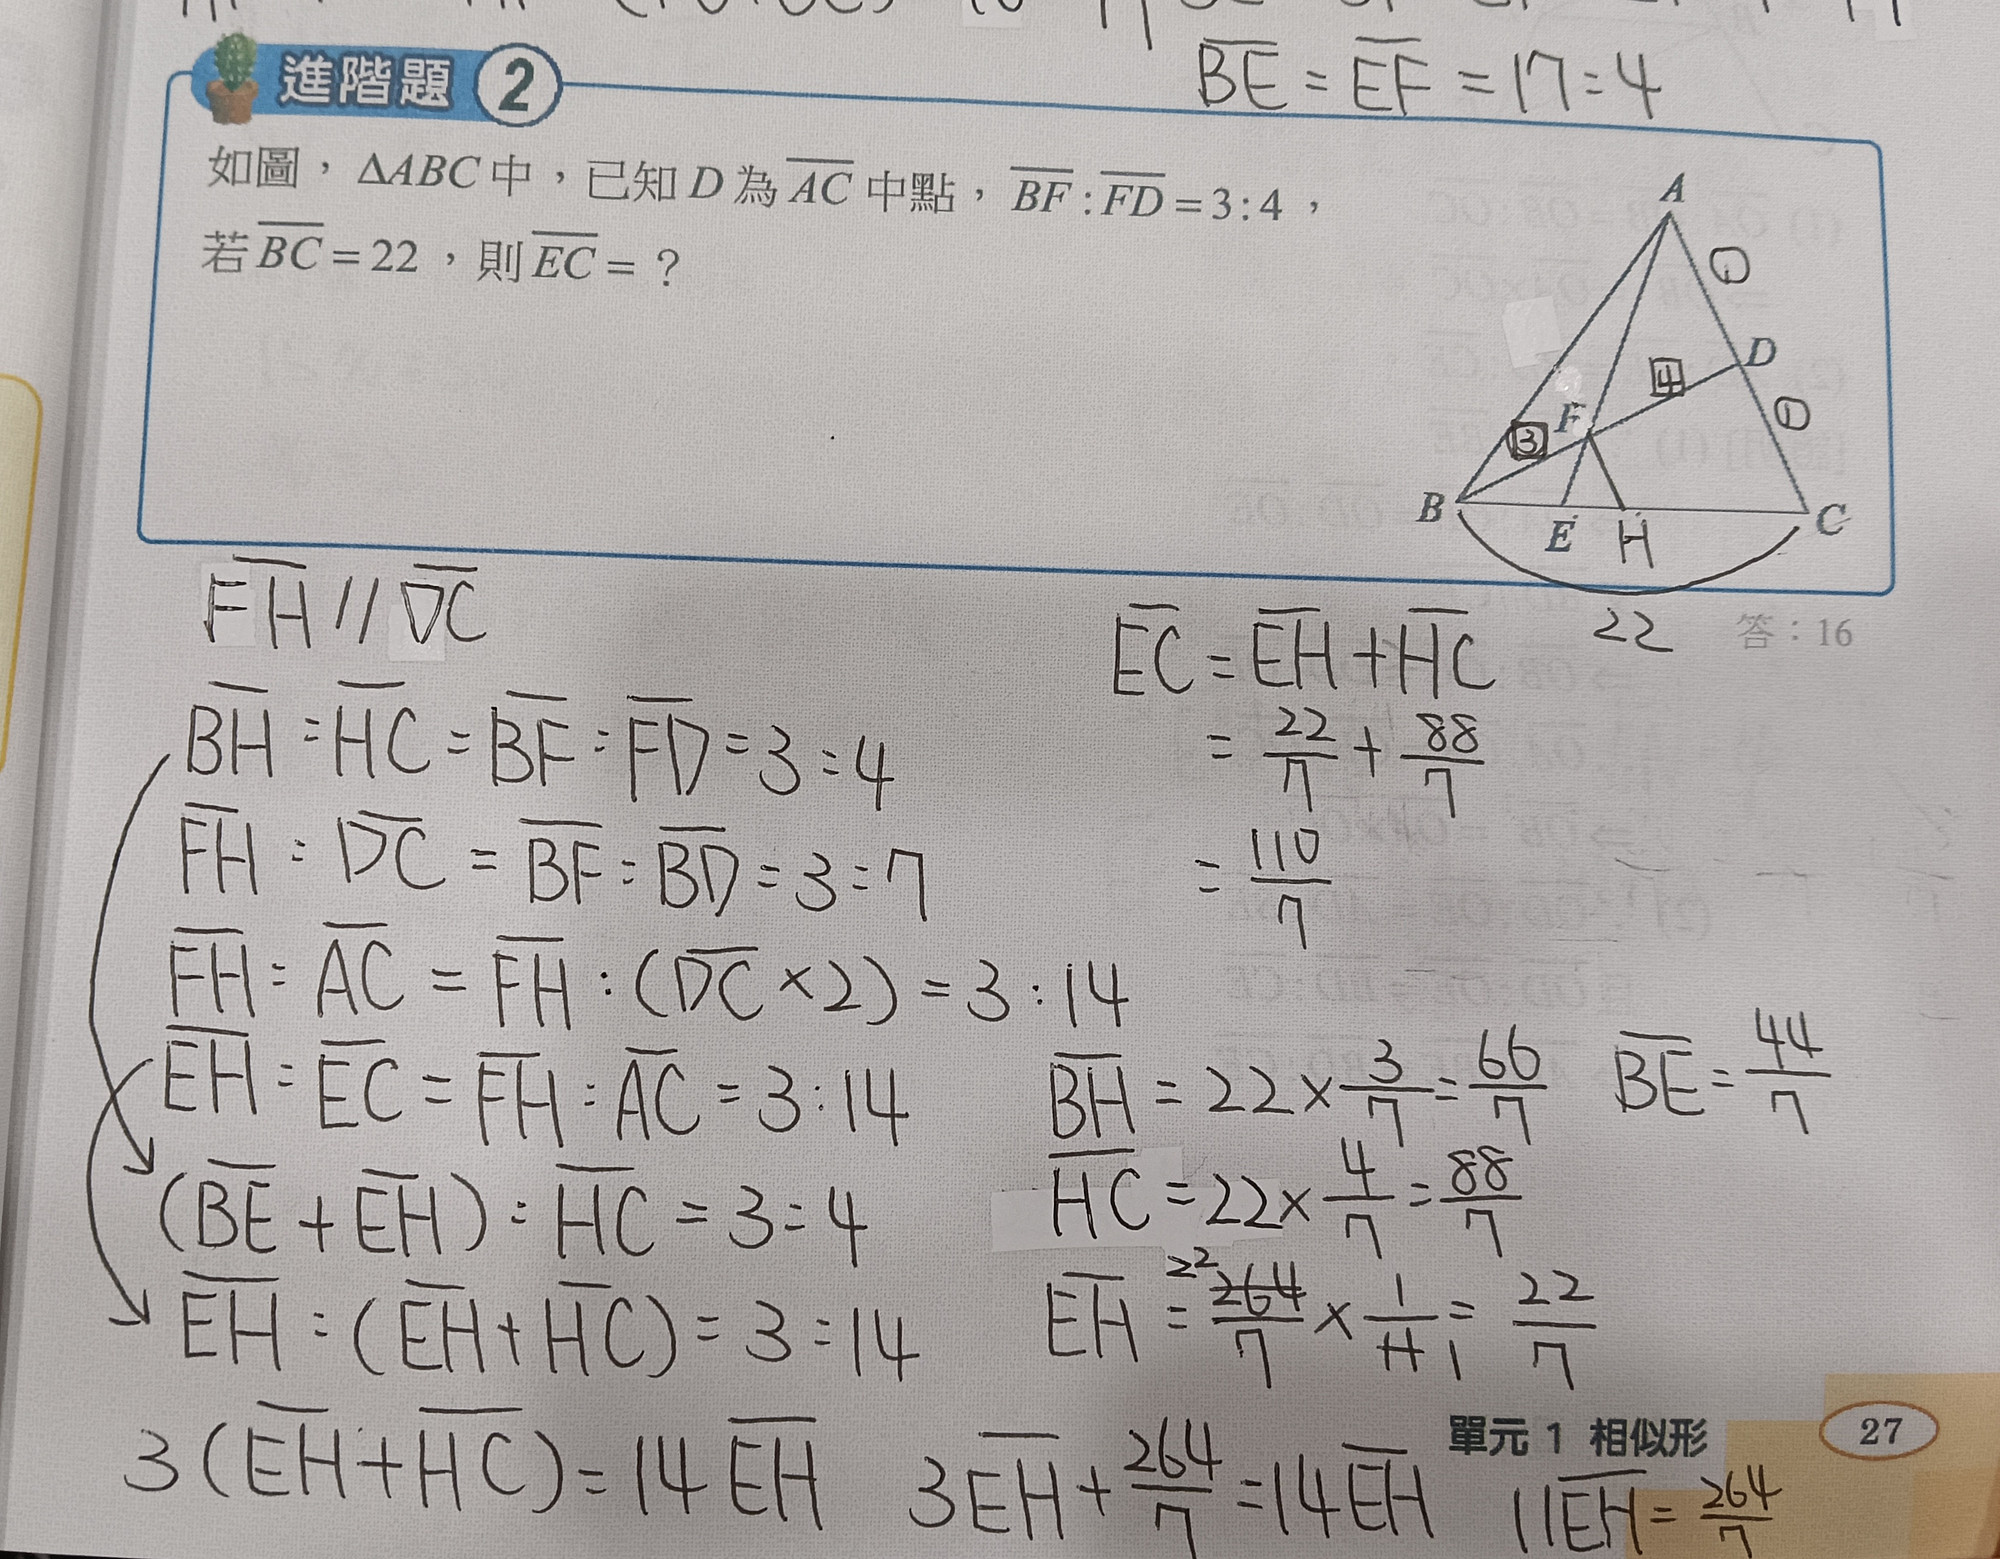 BE = EF = 17 : 4
進階題 2
如圖，ΔABC 中，已知 D 為 AC 中點，BF : FD = 3 : 4，
若 BC = 22，則 EC = ？
A
①
D
4
①
F
3
B
E
H
C
22
答：16
FH // DC
BH : HC = BF : FD = 3 : 4
FH : DC = BF : BD = 3 : 7
FH : AC = FH : (DC × 2) = 3 : 14
EH : EC = FH : AC = 3 : 14
(BE + EH) : HC = 3 : 4
EH : (EH + HC) = 3 : 14
3(EH + HC) = 14EH
EC = EH + HC
= 22/7 + 88/7
= 110/7
BH = 22 × 3/7 = 66/7
BE = 44/7
HC = 22 × 4/7 = 88/7
EH = 264/7 × 1/11 = 22/7
22
1
3EH + 264/7 = 14EH
11EH = 264/7
單元 1 相似形
27